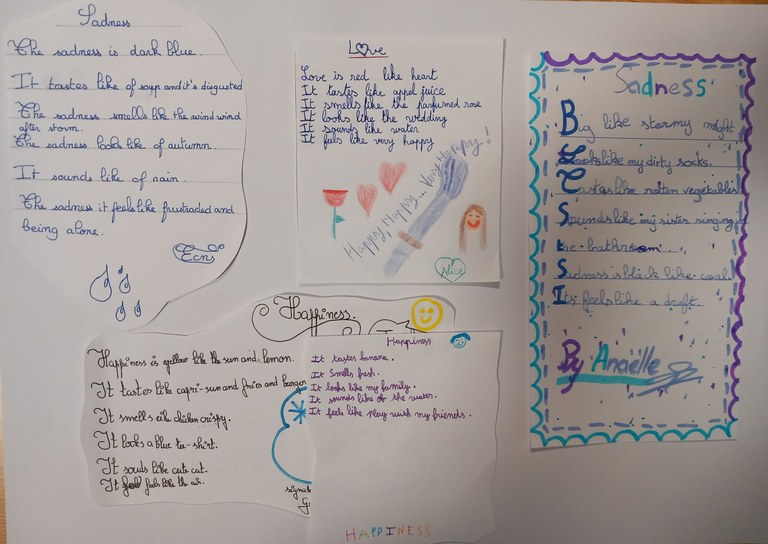 Sadness
The sadness is dark blue.
It tastes like of soup and it's disgusted
The sadness smells like the wind wind
after storm.
The sadness looks like of autumn.
It sounds like of rain.
The sadness it feels like frustraded and
being alone.
Love
Love is red like heart
It tastes like appel juice
It smells like the parfumed rose
It looks like the wedding
It sounds like water
It feels like very happy
Happy, Happy... Very Happy!
Nice
Sadness
Big like stormy night
Looks like my dirty socks.
Tastes like rotten vegetables
Sounds like my sister singing in
the bathroom.
Sadness is black like coal.
It's feels like a draft.
By Anaëlle
Happiness.
Happiness is yellow like the sun and lemon.
It tastes like capri-sun and fries and burger
It smells like chicken crispy.
It looks a blue tee-shirt.
It souds like cute cat...
It feels like the air.
Happiness
It tastes banana.
It Smells fresh.
It looks like my family.
It sounds like of the water.
It feel like play with my friends.
HAPPINESS